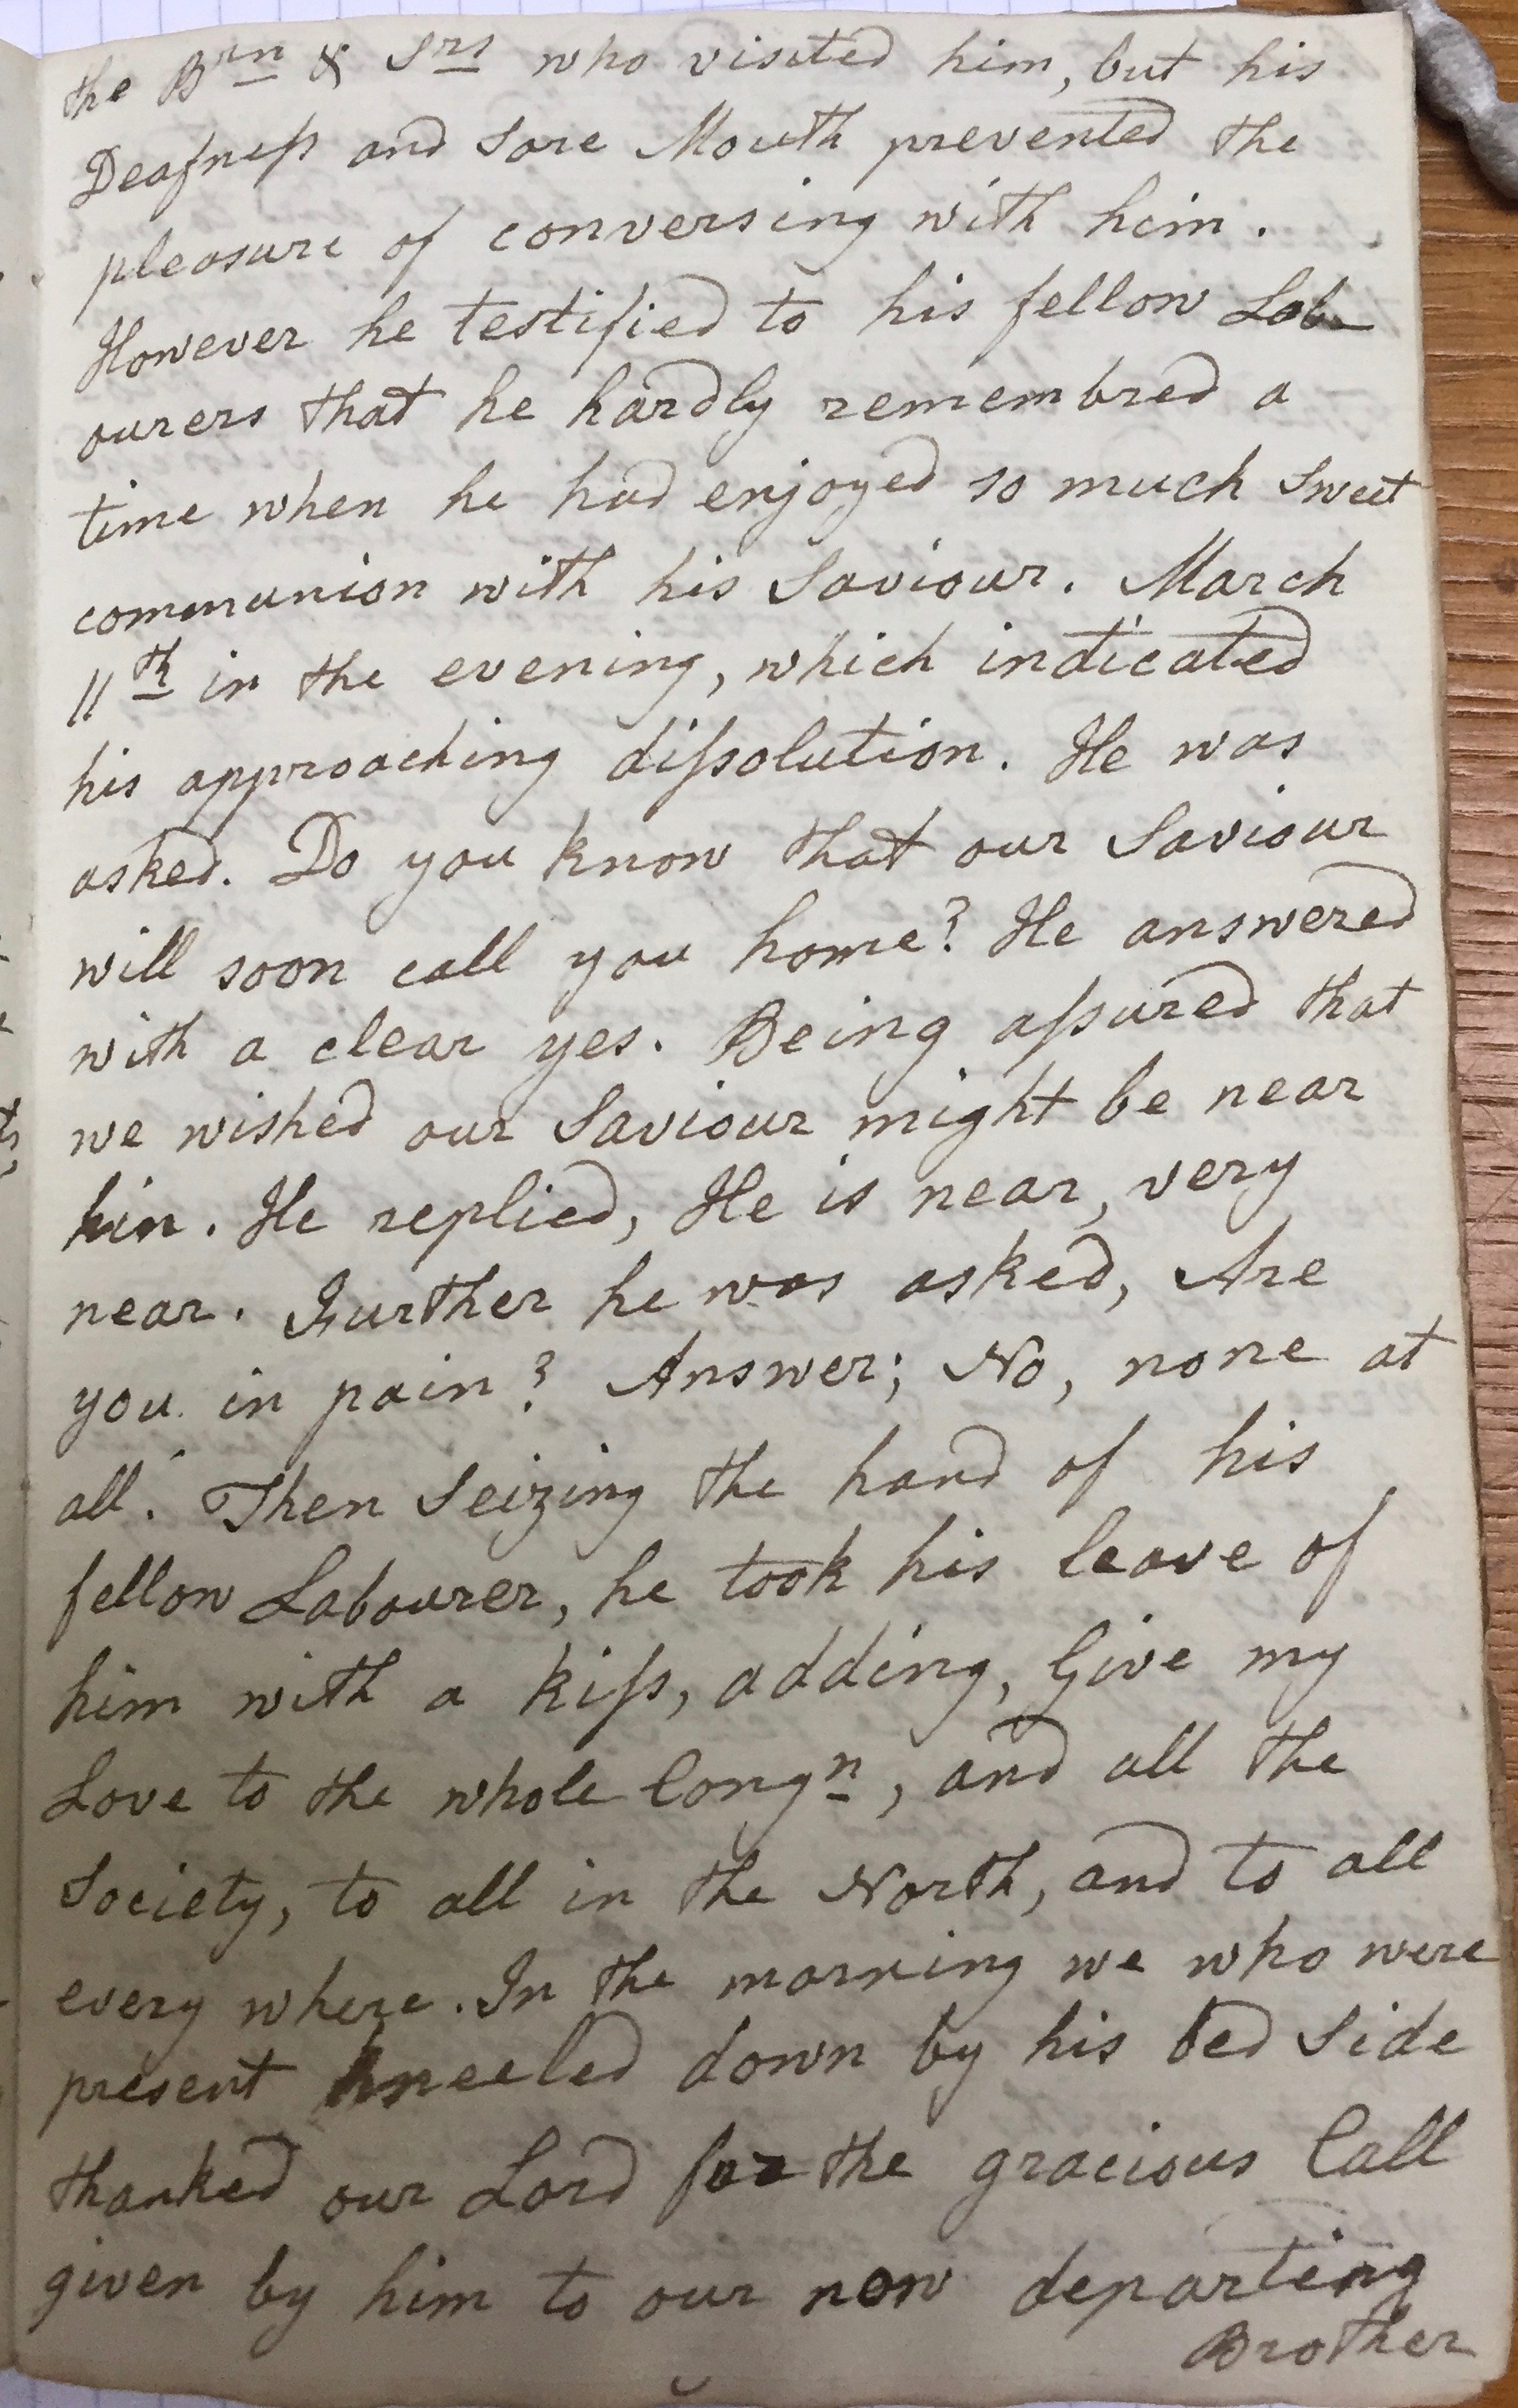 the Brn & Srs who visited him, but his
Deafneſs and Sore Mouth prevented the
pleasure of conversing with him.
However he testified to his fellow Lab-
ourers that he hardly remembred a
time when he had enjoyed so much Sweet
communion with his Saviour. March
11th in the evening, which indicated
his approaching diſsolution. He was
asked. Do you know that our Saviour
will soon call you home? He answered
with a clear yes. Being aſsured that
we wished our Saviour might be near
him. He replied, He is near, very
near. Further he was asked, Are
you in pain? Answer; No, none at
all. Then Seizing the hand of his
fellow Labourer, he took his leave of
him with a kiſs, adding, Give my
Love to the whole Congn, and all the
Society, to all in the North, and to all
every where. In the morning we who were
present kneeled down by his bed Side
thanked our Lord for the gracious Call
given by him to our now departing
Brother